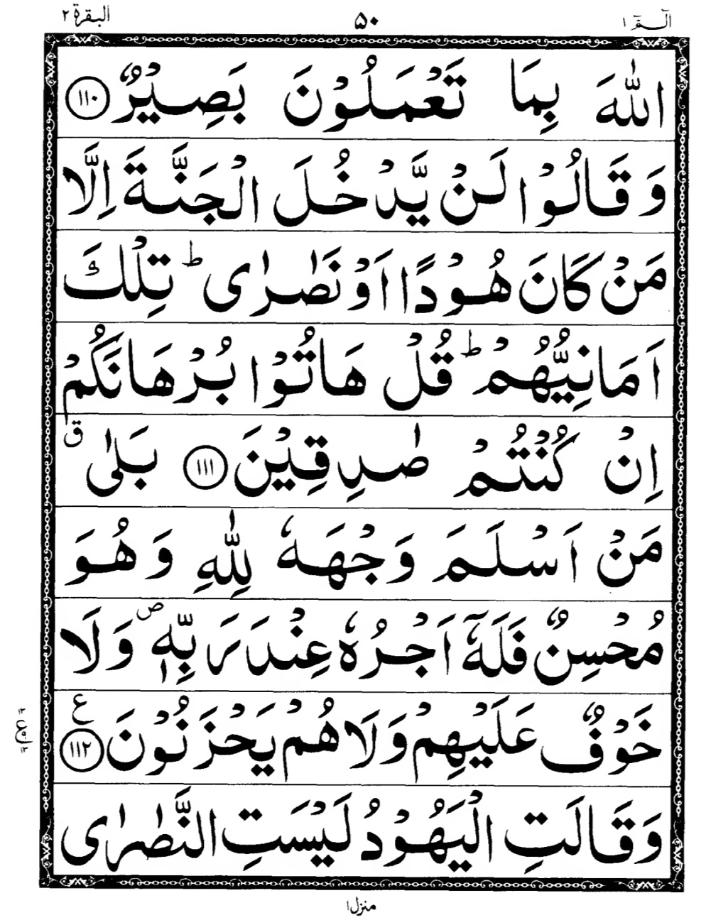 الٓـمّٓ ١ ۵۰ البقرة ٢
اللّٰهَ بِمَا تَعْمَلُوْنَ بَصِيْرٌ ﴿١١٠﴾
وَقَالُوْا لَنْ يَّدْخُلَ الْجَنَّةَ اِلَّا
مَنْ كَانَ هُوْدًا اَوْ نَصٰرٰى ؕ تِلْكَ
اَمَانِيُّهُمْ ؕ قُلْ هَاتُوْا بُرْهَانَكُمْ
اِنْ كُنْتُمْ صٰدِقِيْنَ ﴿١١١﴾ بَلٰى ق
مَنْ اَسْلَمَ وَجْهَهٗ لِلّٰهِ وَهُوَ
مُحْسِنٌ فَلَهٗۤ اَجْرُهٗ عِنْدَ رَبِّهٖ ص وَلَا
خَوْفٌ عَلَيْهِمْ وَلَا هُمْ يَحْزَنُوْنَ ﴿١١٢﴾ ع
وَقَالَتِ الْيَهُوْدُ لَيْسَتِ النَّصٰرٰى
منزل ١